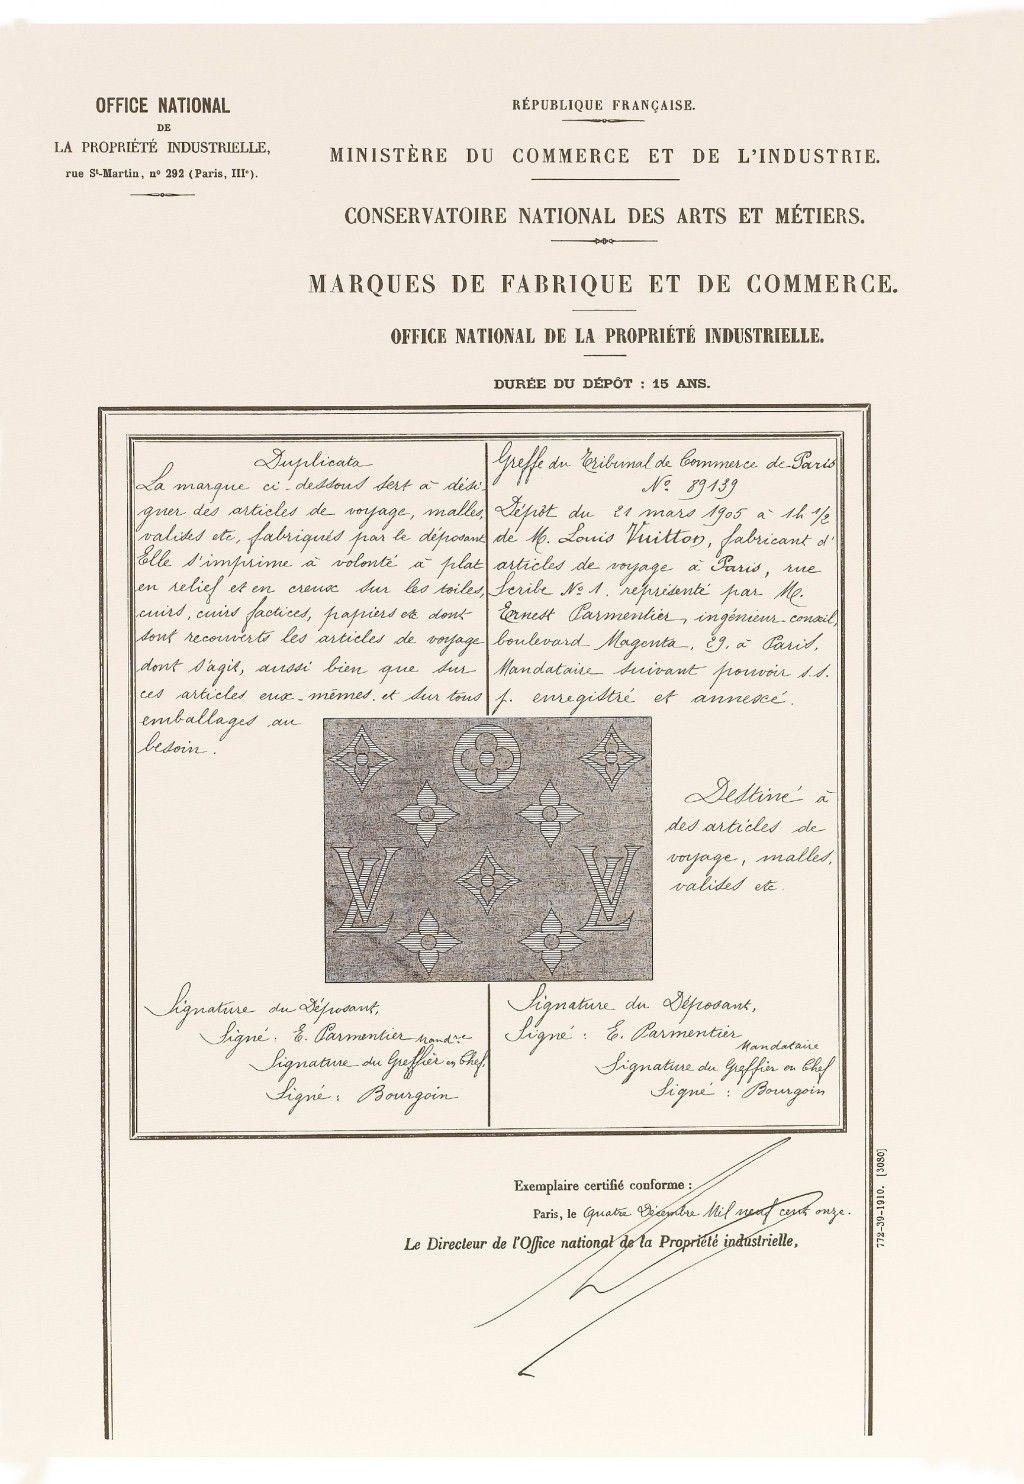 OFFICE NATIONAL
DE
LA PROPRIÉTÉ INDUSTRIELLE,
rue St-Martin, nº 292 (Paris, IIIe).
RÉPUBLIQUE FRANÇAISE.
MINISTÈRE DU COMMERCE ET DE L'INDUSTRIE.
CONSERVATOIRE NATIONAL DES ARTS ET MÉTIERS.
MARQUES DE FABRIQUE ET DE COMMERCE.
OFFICE NATIONAL DE LA PROPRIÉTÉ INDUSTRIELLE.
DURÉE DU DÉPÔT : 15 ANS.
Duplicata
La marque ci-dessous sert à dési-
gner des articles de voyage, malles,
valises etc, fabriqués par le déposant
Elle s'imprime à volonté à plat
en relief et en creux sur les toiles,
cuirs, cuirs factices, papiers etc dont
sont recouverts les articles de voyage
dont s'agit, aussi bien que sur
ces articles eux-mêmes et sur tous
emballages au
besoin.
Greffe du Tribunal de Commerce de Paris
Nº 89139
Dépôt du 21 mars 1905 à 1h 1/2
de M. Louis Vuitton, fabricant d'
articles de voyage à Paris, rue
Scribe Nº 1. représenté par M.
Ernest Parmentier, ingénieur-conseil,
boulevard Magenta, 29. à Paris,
Mandataire suivant pouvoir s.s.
p. enregistré et annexé.
LV LV
Destiné à
des articles de
voyage, malles,
valises etc.
Signature du Déposant,
Signé : E. Parmentier Mandre
Signature du Greffier en Chef,
Signé : Bourgoin
Signature du Déposant,
Signé : E. Parmentier
Mandataire
Signature du Greffier en Chef
Signé : Bourgoin
Exemplaire certifié conforme :
Paris, le quatre Décembre Mil neuf cent onze.
Le Directeur de l'Office national de la Propriété industrielle,
772-39-1910. [3080]